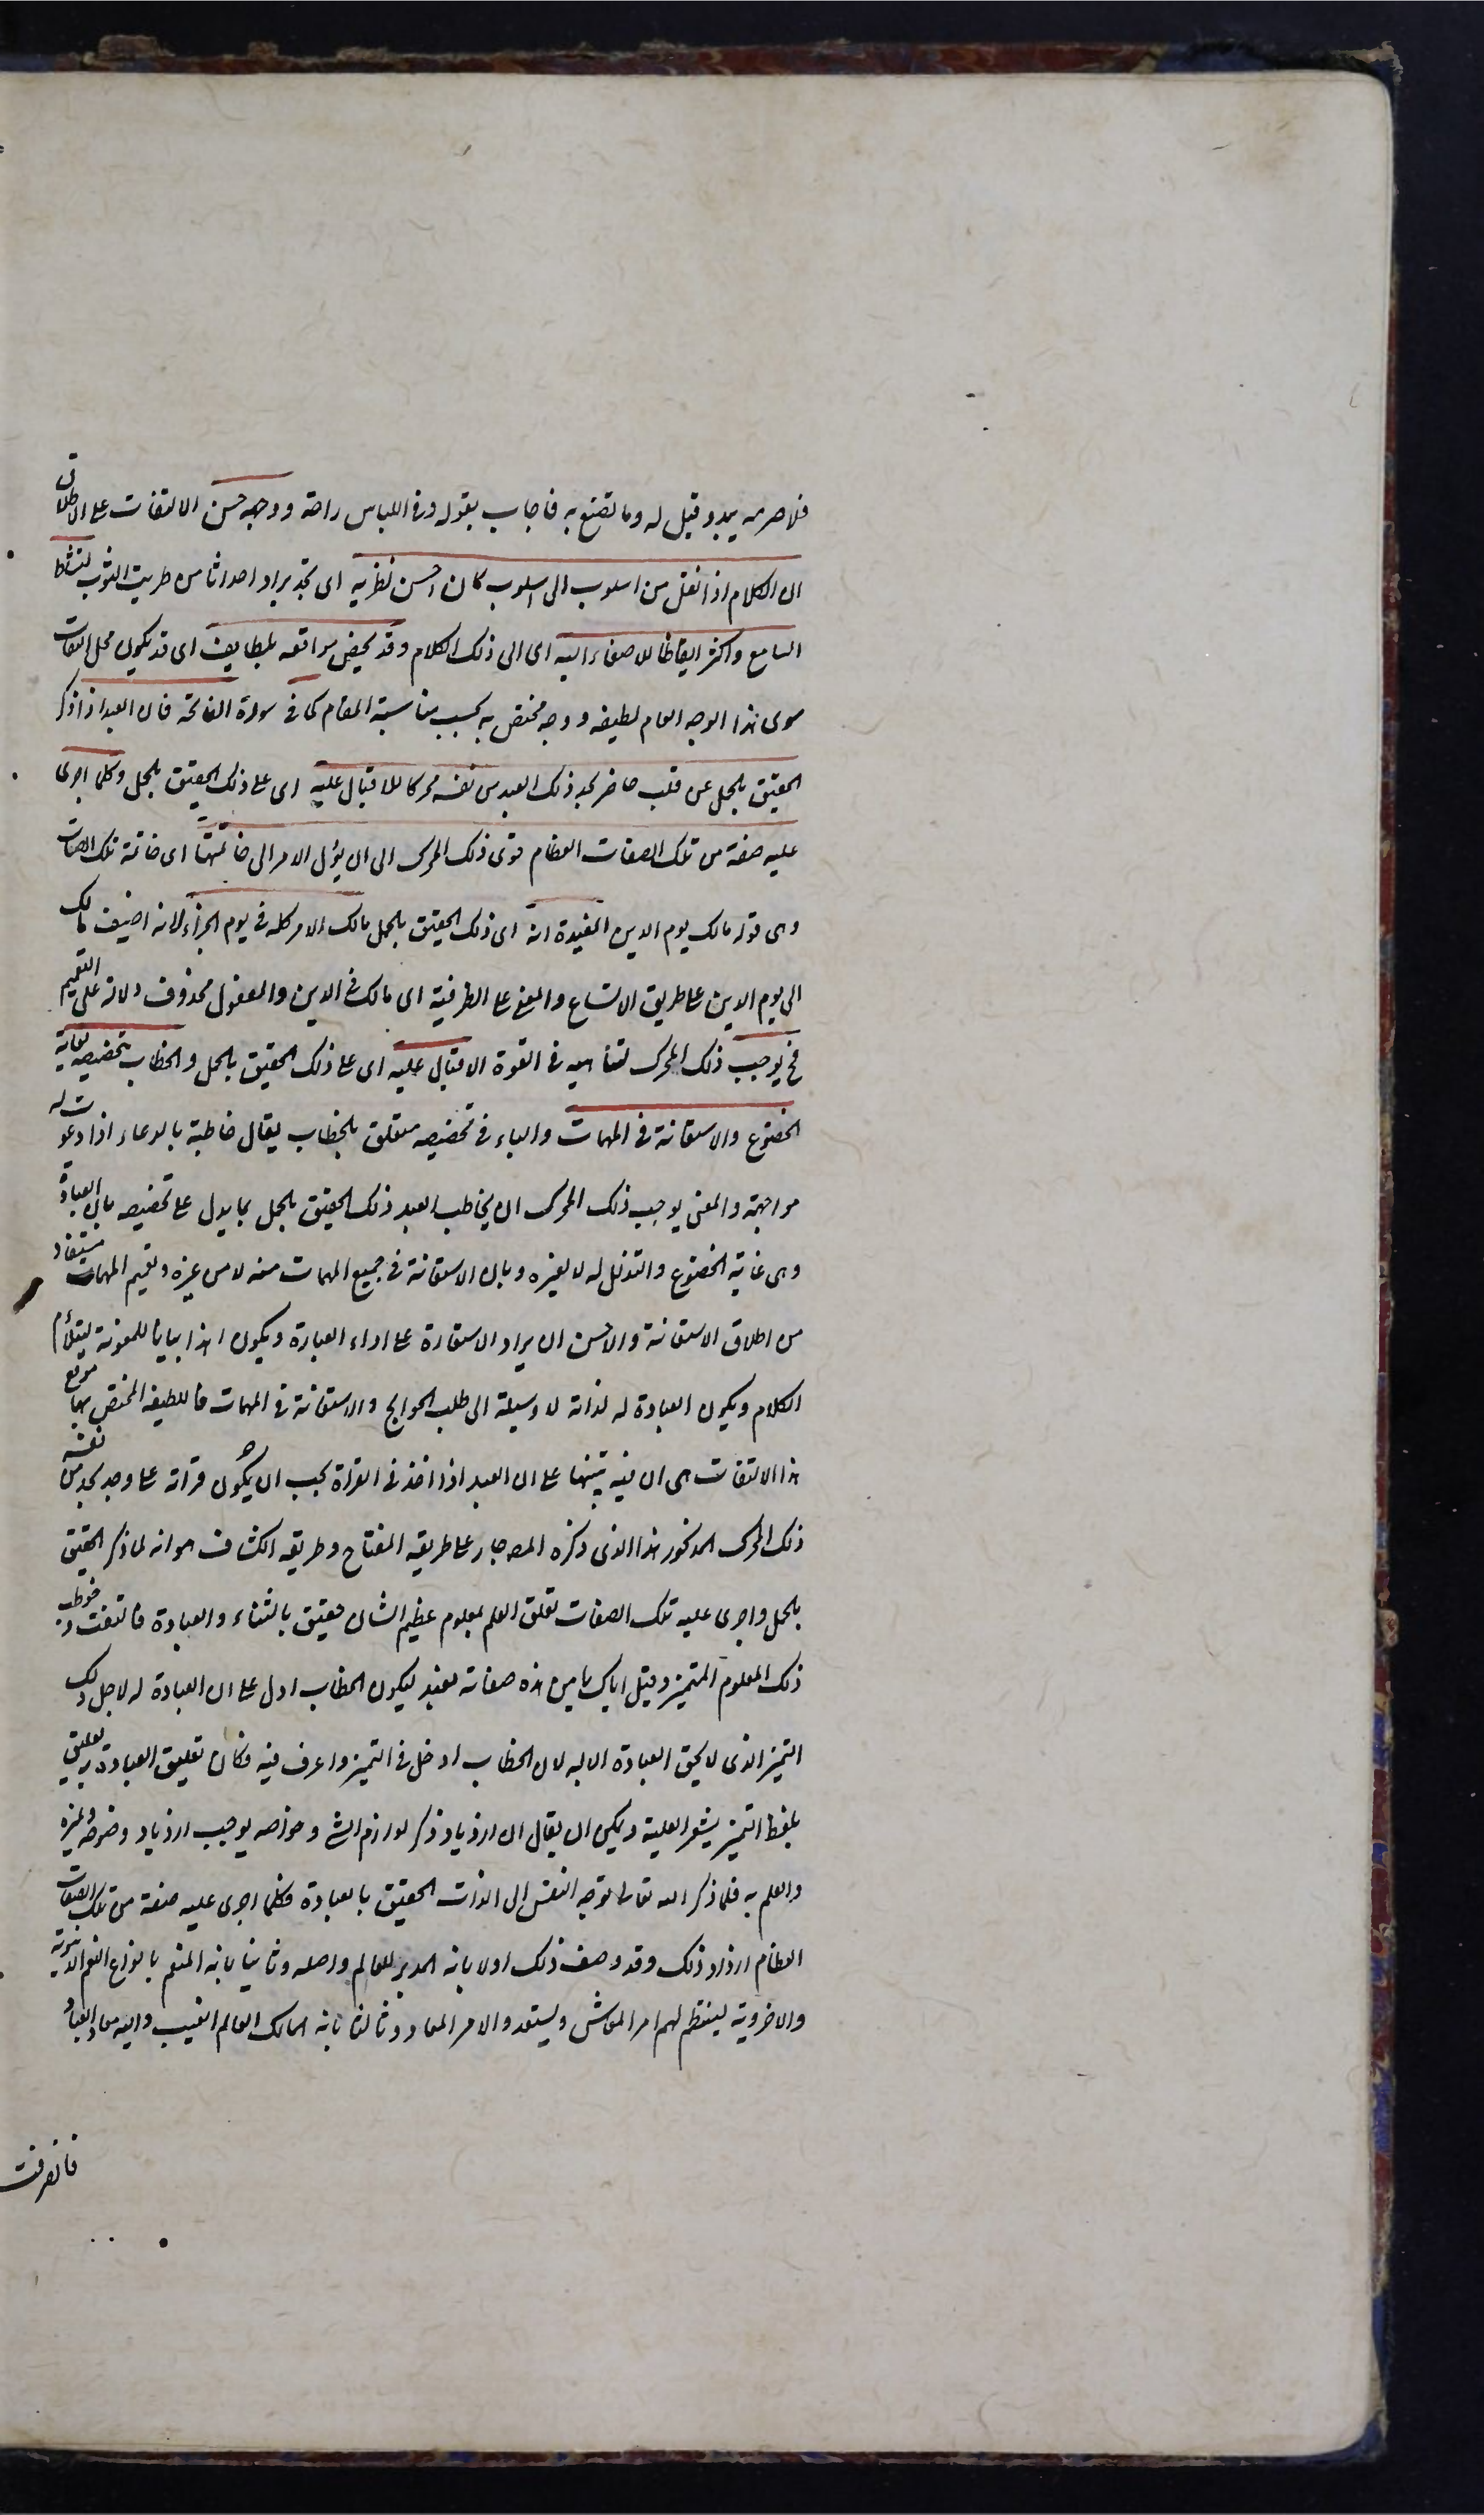 فلا صرمه يبدو قيل له وما تصنع به فاجاب بقوله وفى الياس راحة ووجه حسن الالتفات على الاطلاق
ان الكلام اذا نقل من اسلوب الى اسلوب كان احسن نظرية اى تجديدا واحداثا من طريت الثوب لنشاط
السامع واكثر ايقاظا للاصغاء اليه اى الى ذلك الكلام وقد يختص مواقعه بلطايف اى قد يكون لكل التفات
سوى هذا الوجه العام لطيفه ووجه مختص به بحسب مناسبة المقام كما فى سورة الفاتحة فان العبد اذا ذكر
الحقيق بالحمل عن قلب حاضر يجد ذلك العبد من نفسه محركا للاقبال عليه اى على ذلك الحقيق بالحمل وكلما اجرى
عليه صفة من تلك الصفات العظام قوى ذلك المحرك الى ان يؤل الامر الى خاتمتها اى خاتمة تلك الصفات
وهى قوله مالك يوم الدين المفيدة انه اى ذلك الحقيق بالحمل مالك الامر كله فى يوم الجزاء لانه اضيف مالك
الى يوم الدين على طريق الاتساع والمعنى على الظرفية اى مالك فى الدين والمفعول محذوف دلالة على التعميم
فح يوجب ذلك المحرك لتناهيه فى القوة الاقبال عليه اى على ذلك الحقيق بالحمل والخطاب بتخصيصه بغاية
الخضوع والاستعانة فى المهمات والباء فى تخصيصه متعلق بالخطاب يقال خاطبته بالدعاء اذا دعوت له
مواجهة والمعنى يوجب ذلك المحرك ان يخاطب العبد ذلك الحقيق بالحمل بما يدل على تخصيصه بان العبادة
وهى غاية الخضوع والتذلل له لا لغيره وبان الاستعانة فى جميع المهمات منه لا من غيره وتعميم المهمات مستفاد
من اطلاق الاستعانة والاحسن ان يراد الاستعارة على اداء العبادة ويكون اهدنا بيانا للمعونة ليتلأم
الكلام ويكون العبادة له لذاته لا وسيلة الى طلب الحوايج والاستعانة فى المهمات فاللطيفه المختص بها موقع
هذا الالتفات هى ان فيه تنبيها على ان العبد اذا اخذ فى القراة يجب ان يكون قراته على وجه يجد من نفسه
ذلك المحرك المذكور هذا الذى ذكره المص جار على طريقه المفتاح وطريقه الكشاف هو انه لما ذكر الحقيق
بالحمل واجرى عليه تلك الصفات تعلق العلم بمعلوم عظيم الشان حقيق بالثناء والعبادة فالتفت وخوطب
ذلك المعلوم المتميز وقيل اياك يا من هذه صفاته نعبد ليكون الخطاب ادل على ان العبادة له لاجل ذلك
التميز الذى لا يحق العبادة الا به لان الخطاب ادخل فى التميز واعرف فيه فكان تعليق العبادة به تعليق
بلفظ التميز يشعر العلية ويمكن ان يقال ان ازدياد ذكر لوازم الشئ وخواصه يوجب ازدياد وضوحه وتميزه
والعلم به فلما ذكر الله تعالى توجه النفس الى الذات الحقيق بالعبادة فكلما اجرى عليه صفة من تلك الصفات
العظام ازداد ذلك وقد وصف ذلك اولا بانه المدبر للعالم واهله وثانيا بانه المنعم بانواع النعم الدنيوية
والاخروية لينتظم لهم امر المعاش ويستعدوا لامر المعاد وثالثا بانه المالك لعالم الغيب واليه معاد العباد
فانصرفت